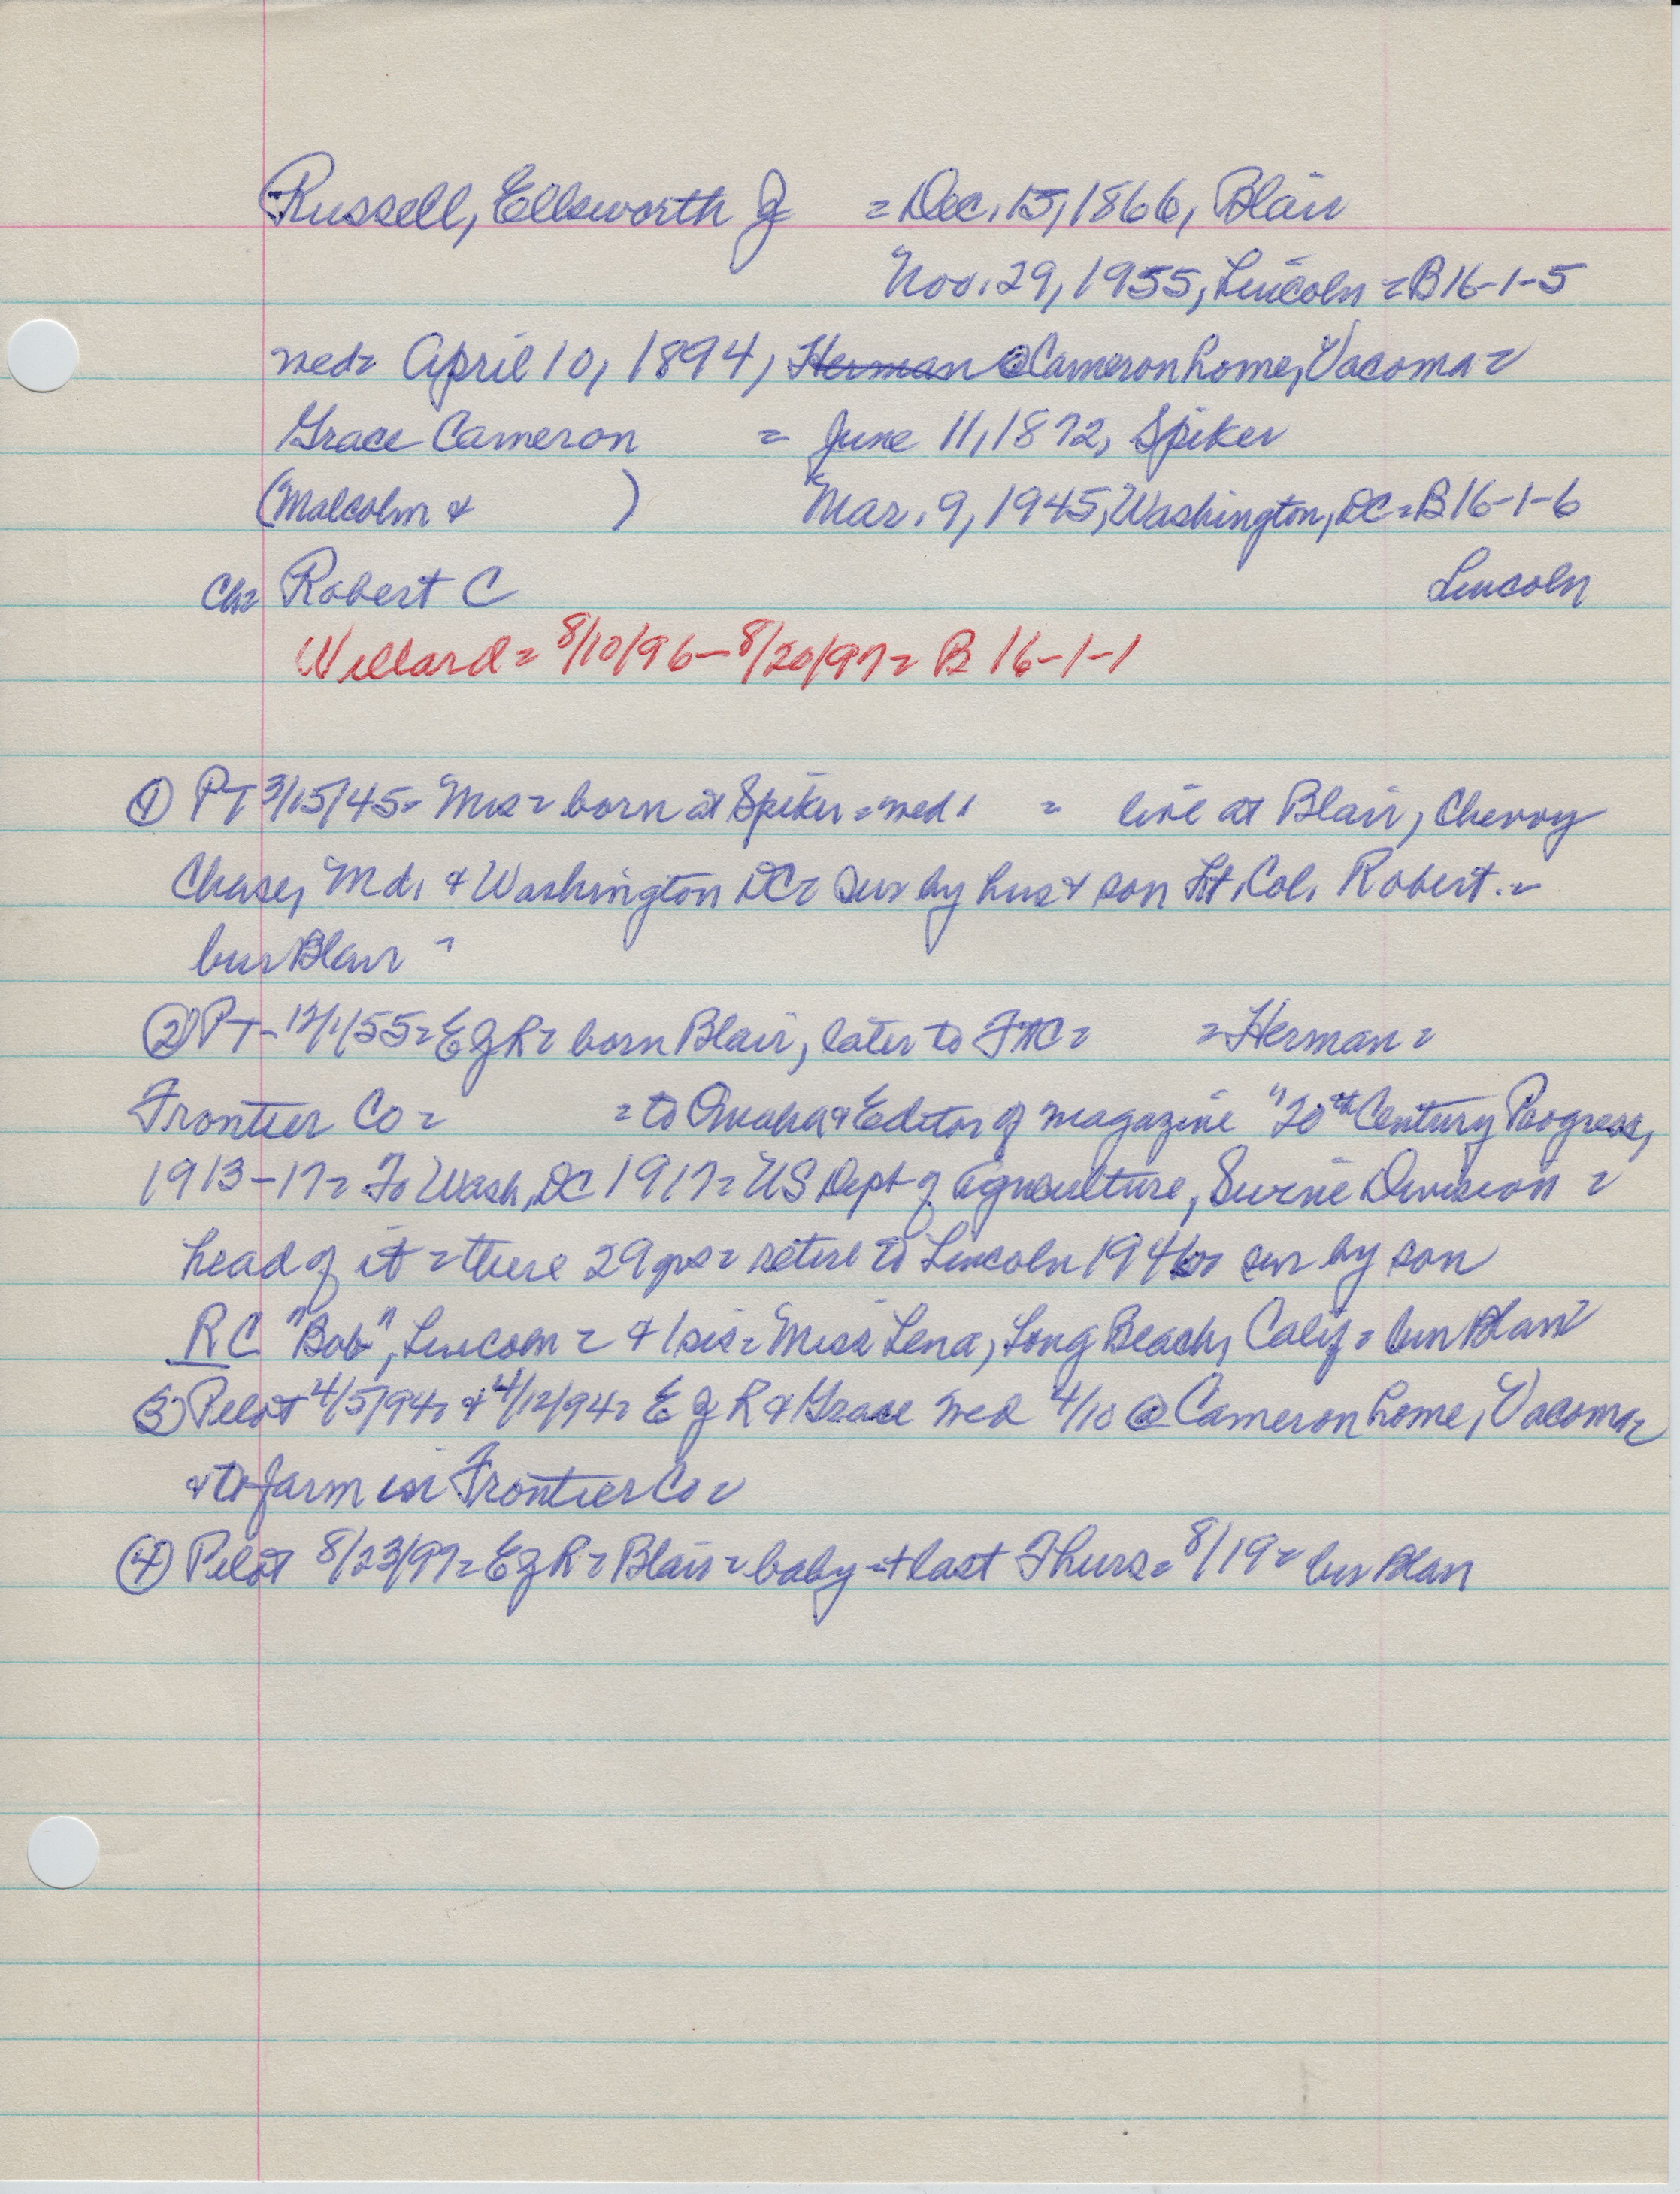 Russell, Ellsworth J = Dec. 15, 1866, Blair
Nov. 29, 1955, Lincoln = B16-1-5
wed= April 10, 1894, Herman @ Cameron home, Vacoma =
Grace Cameron = June 11, 1872, Spiker
(Malcolm & ) Mar. 9, 1945, Washington, DC = B16-1-6
Ch= Robert C Lincoln
Willard = 8/10/96 - 8/20/97 = B 16-1-1
① PT 3/15/45 = Mrs = born at Spiker = wed = live at Blair, Chevvy
Chase, Md. & Washington DC = sur by hus & son Lt. Col. Robert. =
bur Blair =
② PT - 12/1/55 = E J R = born Blair, later to = Herman =
Frontier Co = = to Omaha & Editor of magazine "20th Century Progress,
1913-17 = To Wash, DC 1917 = US Dept of Agriculture, Swine Division =
head of it = there 29 yrs = retire to Lincoln 1946 = sur by son
RC "Bob", Lincoln = & 1 sis = Miss Lena, Long Beach, Calif = bur Blair
③ Pilot 4/5/94 = & 4/12/94 = E J R & Grace wed 4/10 @ Cameron home, Vacoma =
& to farm in Frontier Co =
④ Pilot 8/23/97 = E J R = Blair = baby + last Thurs = 8/19 = bur Blair